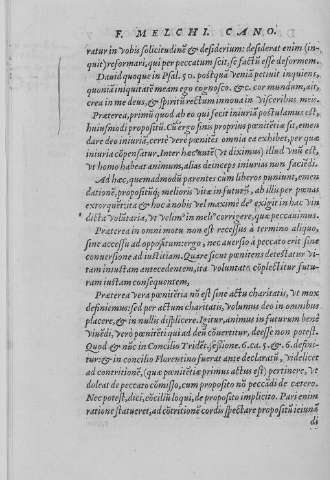 F. MELCHI. CANO.
ratur in vobis solicitudinē & desiderium: desiderat enim (in-
quit) reformari, qui per peccatum scit, se factū esse deformem.
Dauid quoque in Psal. 50. postquā veniā petiuit inquiens,
quoniā iniquitatē meam ego cognosco. &c. cor mundum, ait,
crea in me deus, & spiritū rectum innoua in visceribus meis.
Præterea, primū quod ab eo qui fecit iniuriā postulamus est,
huiusmodi propositū. Cū ergo finis proprius pœnitētiæ sit, emen
dare deo iniuriā, certè verè pœnitēs omnia ea exhibet, per quæ
iniuria cōpensatur. Inter hæc autē (vt diximus) illud vnū est,
vt homo habeat animum, alias deinceps iniurias non faciēdi.
Ad hæc, quemadmodū parentes cum liberos puniunt, emen
dationē, propositūq́; melioris vitæ in futurū, ab illis per pœnas
extorquēt: ita & hoc à nobis vel maximè deꝰ exigit in hac vin
dicta volūtaria, vt velimꝰ in meliꝰ corrigere, quæ peccauimus.
Præterea in omni motu non est recessus à termino aliquo,
sine accessu ad oppositum: ergo, nec auersio à peccato erit sine
conuersione ad iustitiam. Quare sicut pœnitens detestatur vi-
tam iniustam antecedentem, ita voluntate cōplectitur futu-
ram iustam consequentem,
Præterea vera pœnitētia nō est sine actu charitatis, vt mox
definiemus: sed per actum charitatis, volumus deo in omnibus
placere, & in nullis displicere. Igitur, animus in futurum benè
viuēdi, verò pœnitēti qui ad deū cōuertitur, deesse non potest.
Quod & nūc in Concilio Tridēt. sessione. 6. ca. 5. & 6. definic-
tur: & in concilio Florentino fuerat ante declaratū, videlicet
ad contritionē, (quæ pœnitētiæ primus actus est) pertinere, vt
doleat de peccato cōmisso, cum proposito nō peccādi de cætero.
Nec potest, dici, cōciliū loqui, de proposito implicito. Pari enim
ratione statueret, ad cōtritionē cordis spectare propositū ieiunā
di